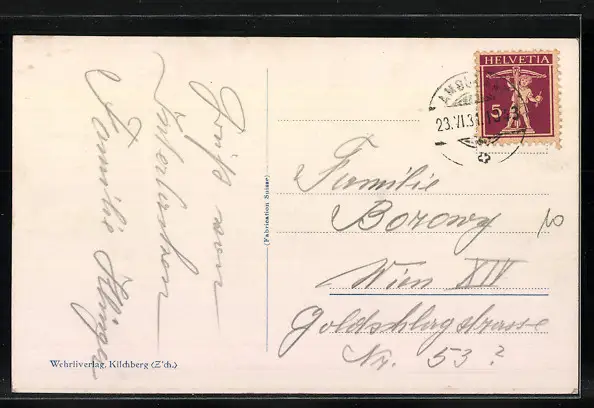 Grüße vom
Interlaken
Familie
HELVETIA
5
AMBUL
23.VI.31.
Familie
Borowy
Wien XIV
Goldschlagstrasse
Nr. 53?
(Fabrication Suisse)
Wehrliverlag, Kilchberg (Z'ch.)